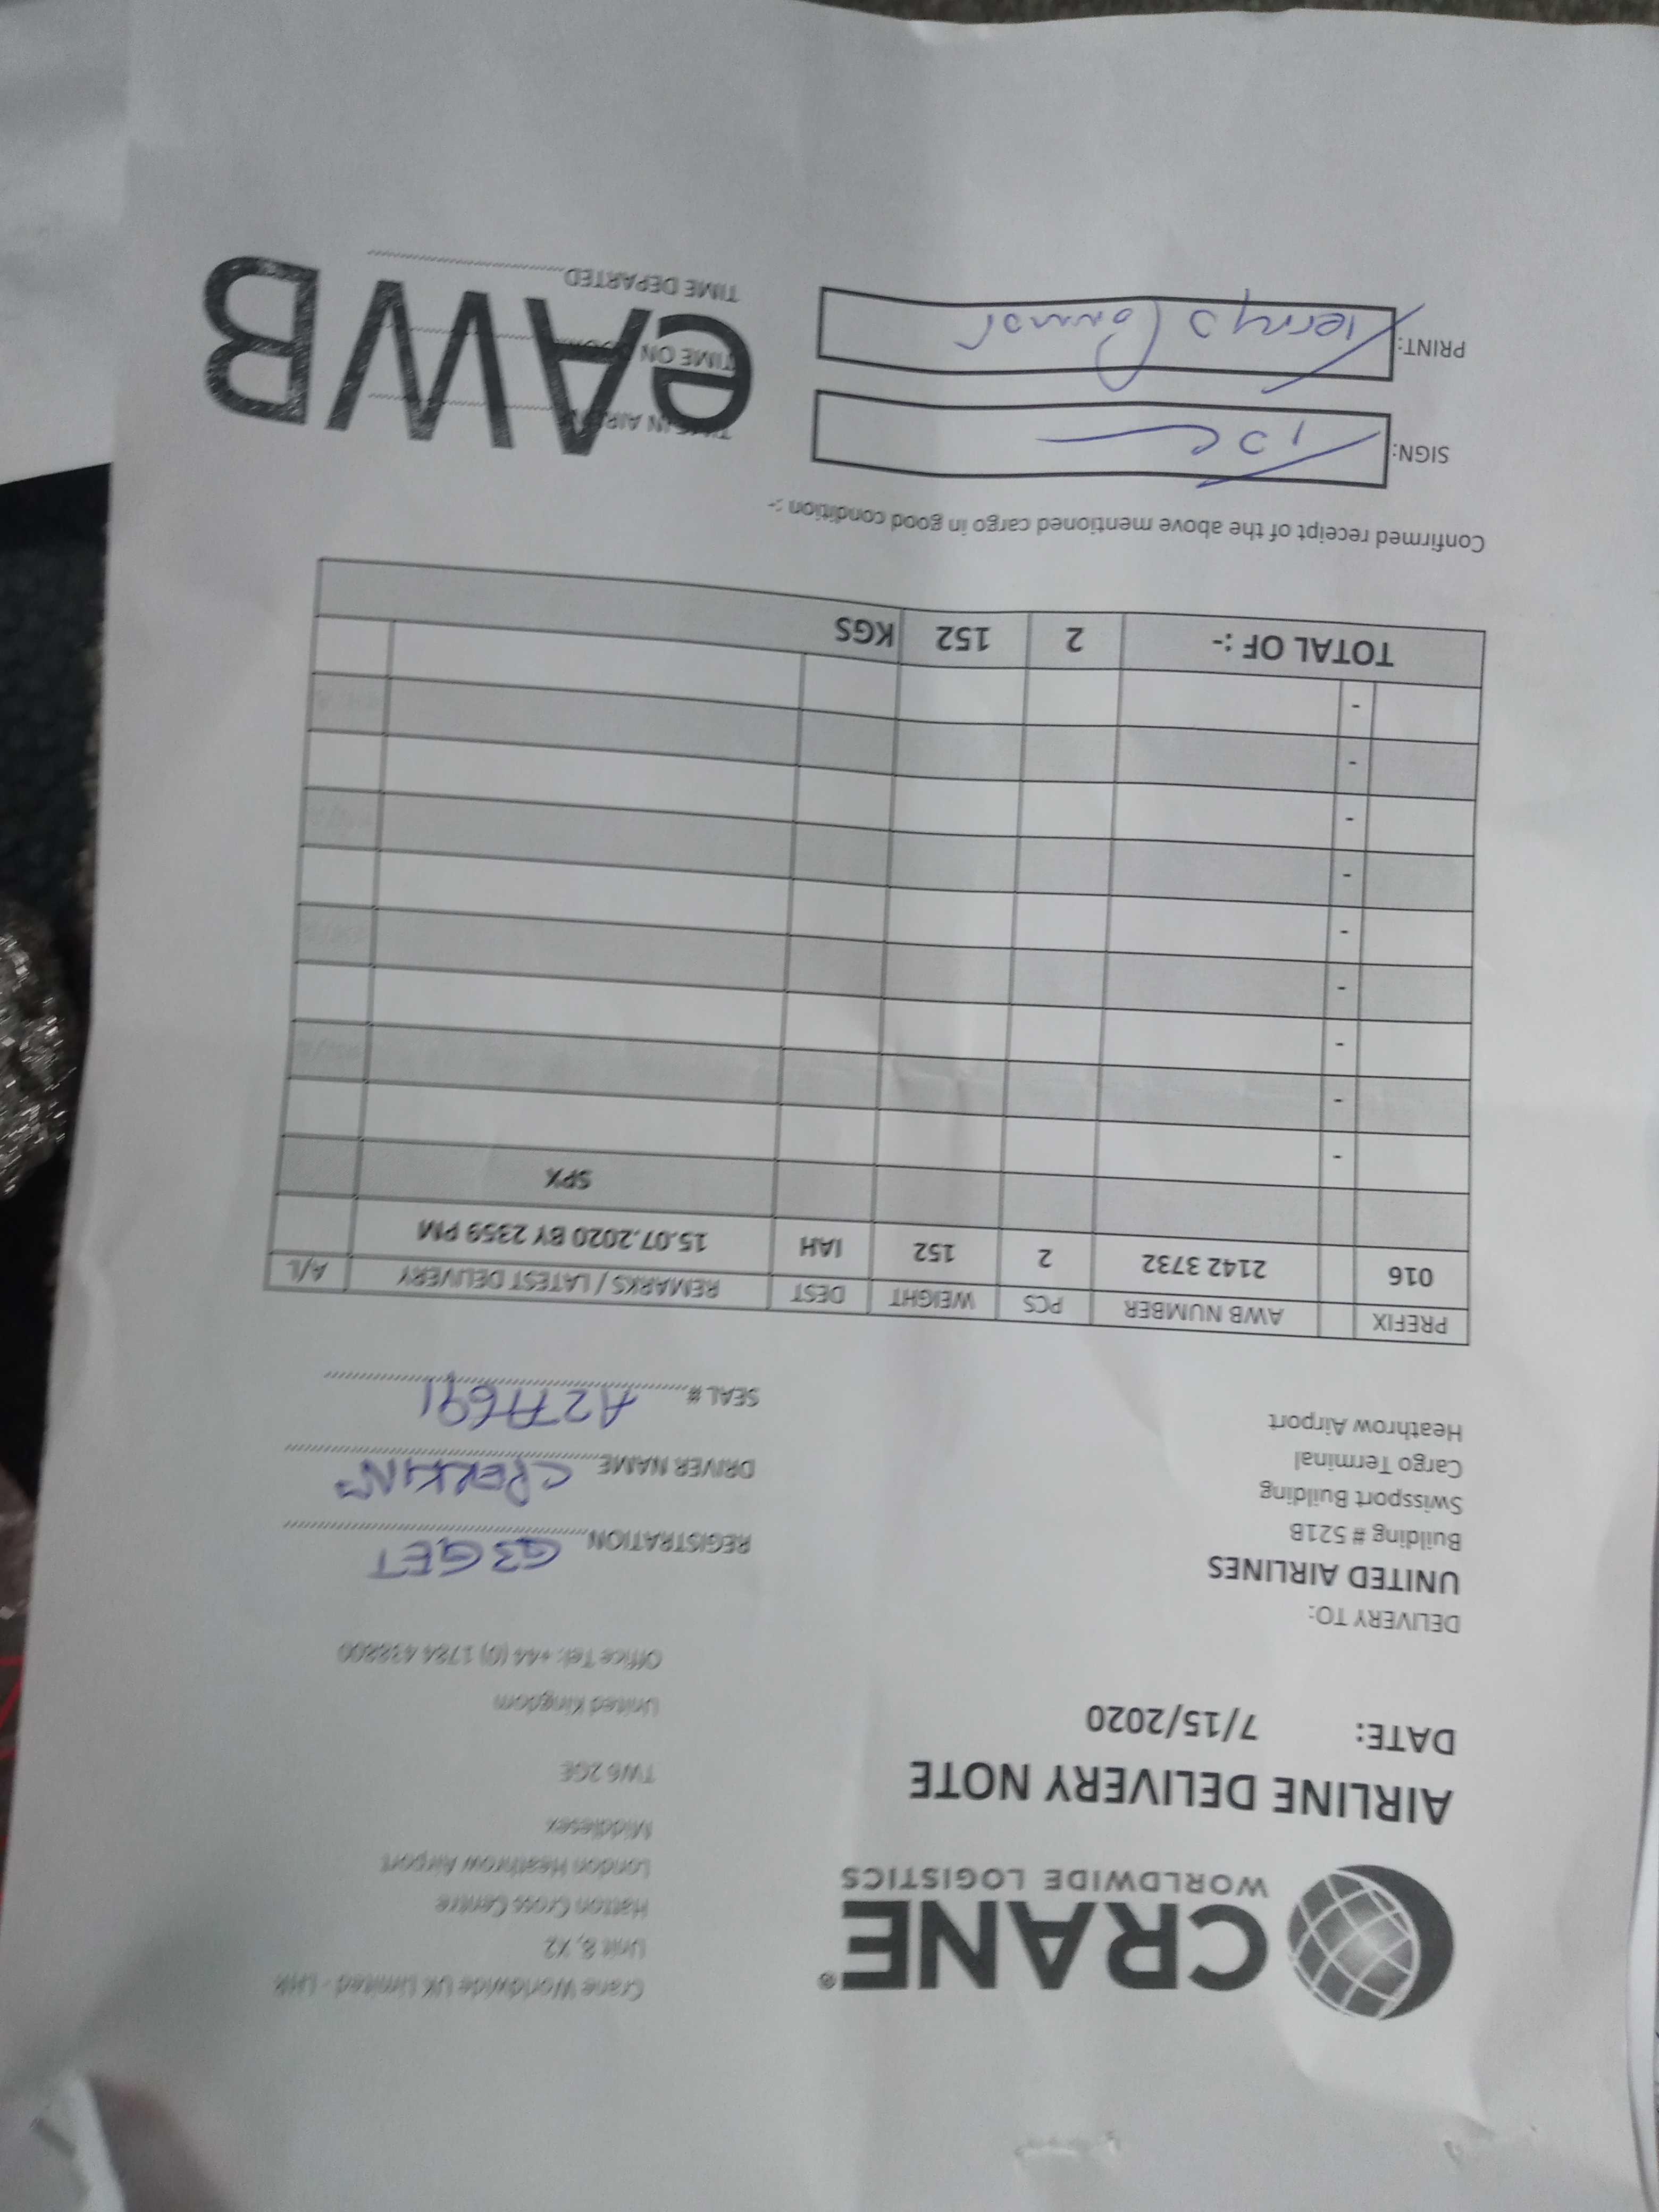 CRANE®
WORLDWIDE LOGISTICS
Crane Worldwide UK Limited - LHR
Unit 8, X2
Hatton Cross Centre
London Heathrow Airport
Middlesex
TW6 2GE
United Kingdom
Office Tel: +44 (0) 1784 438800
AIRLINE DELIVERY NOTE
DATE: 7/15/2020
DELIVERY TO:
UNITED AIRLINES
Building # 521B
Swissport Building
Cargo Terminal
Heathrow Airport
REGISTRATION G3GET
DRIVER NAME
SEAL #
PREFIX AWB NUMBER PCS WEIGHT DEST REMARKS / LATEST DELIVERY A/L
016 2142 3732 2 152 IAH 15.07.2020 BY 2359 PM
SPX
-
-
-
-
-
-
-
-
-
TOTAL OF :- 2 152 KGS
Confirmed receipt of the above mentioned cargo in good condition :-
SIGN:
PRINT:
TIME ON
TIME DEPARTED
eAWB